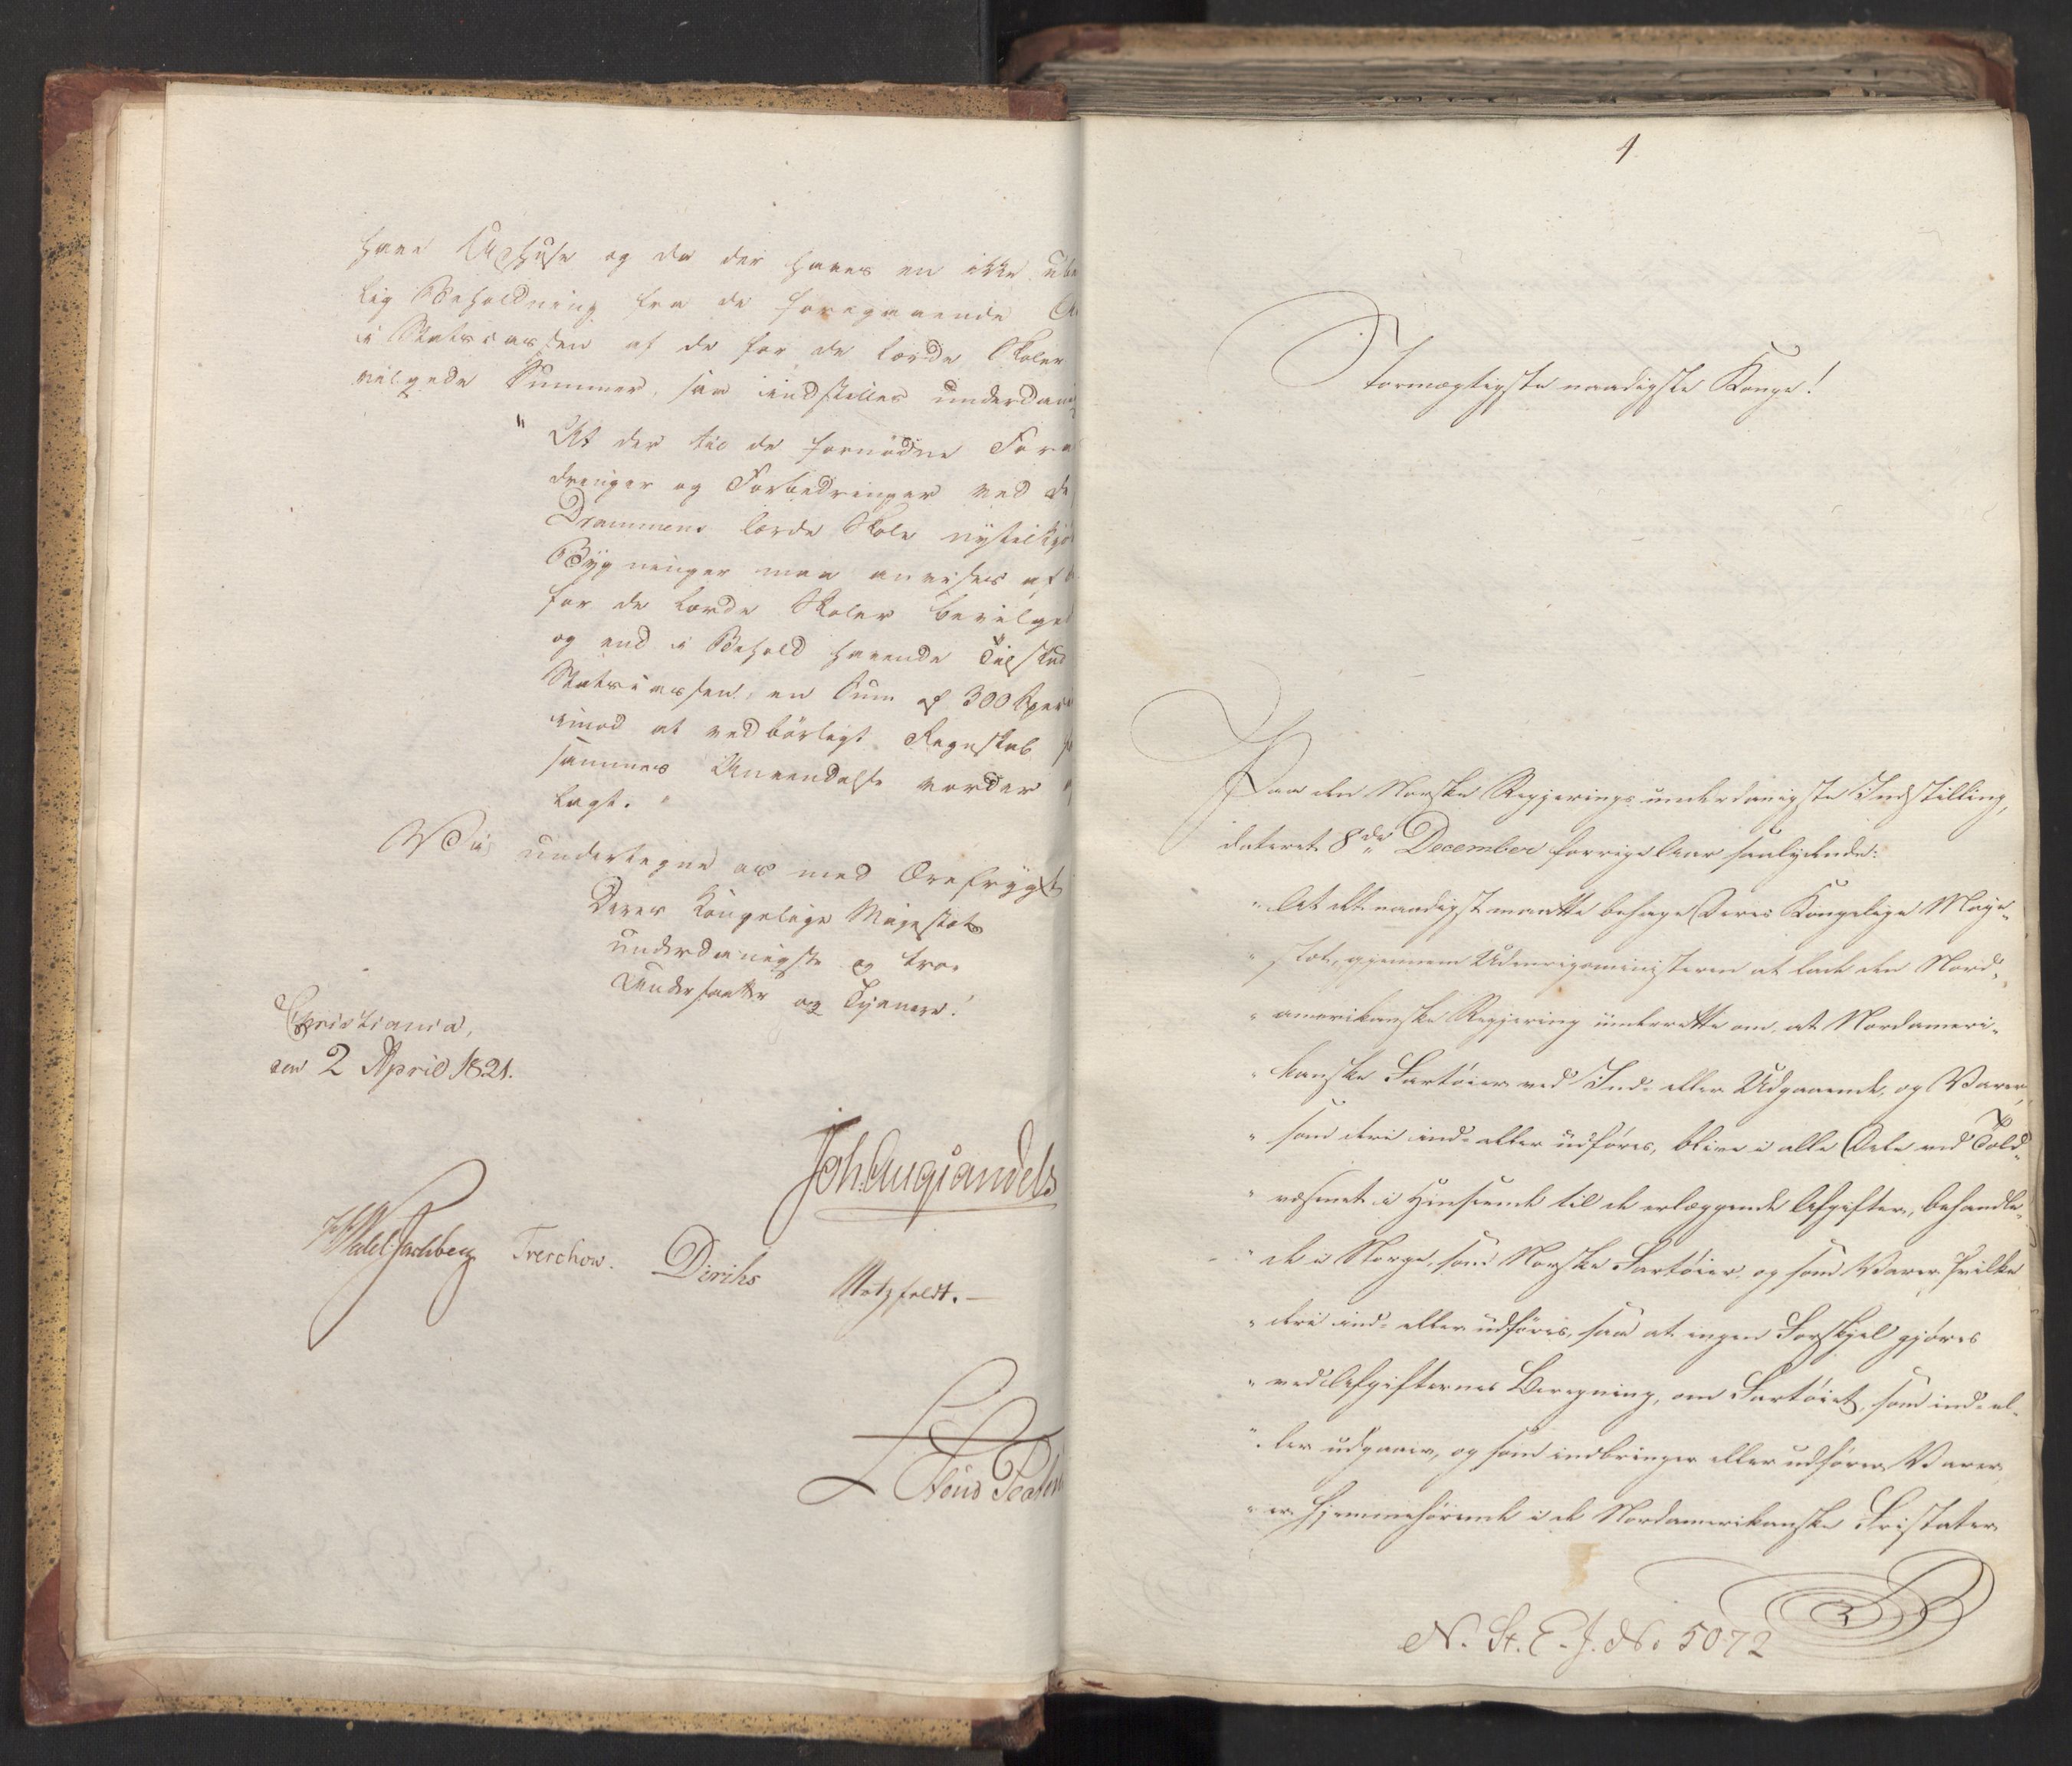 have Uthuse og da der haves en ikke ube
lig Beholdning fra de foregaaende
i Statscassen af de for de lærde Skoler
vilgede Summer, saa indstilles underdanig
" At der til de fornødne Foran
dringer og Forbedringer ved de
Drammens lærde Skole nysselkjø
Bygninger maa anvises af
for de lærde Skoler bevilged
og end i Behold havende Tilskud
Statscassen en Sum af 300 Speci
imod at vedbörligt Regnskab
sammes Anvendelse vorder
lagt. "
Vi undertegne os med Ærefrygt
Deres Kongelige Majestæts
underdanigste og troe
Undersaatter og Tjenere!
Christiania,
den 2 April 1821.
Joh. Aug Sandels
Treschow. Diriks Motzfeldt.
4
Stormægtigste naadigste Konge!
Paa den Norske Regjerings underdanigste Indstilling,
dateret 8de December forrige Aar saalydende:
" At det naadigst maatte behage Deres Kongelige Maje-
" stæt, gjennem Udenrigsministeren at lade den Nord-
" amerikanske Regjering underrette om, at Nordameri-
" kanske Fartöier ved Ind- eller Udgaaende, og Varer,
" som deri ind- eller udföres, blive i alle Dele ved Told-
" væsenet i Henseende til de erlæggende Afgifter, behandle-
" de i Norge, som Norske Fartöier, og som Varer hvilke
" deri ind- eller udföres, saa at ingen Forskjel gjöres
" ved Afgifternes Beregning, om Fartöiet, som ind- el-
" ler udgaaer, og som indbringer eller udförer Varer,
" er hjemmehörende i de Nordamerikanske Fristater
N. St. E. J. No 5072